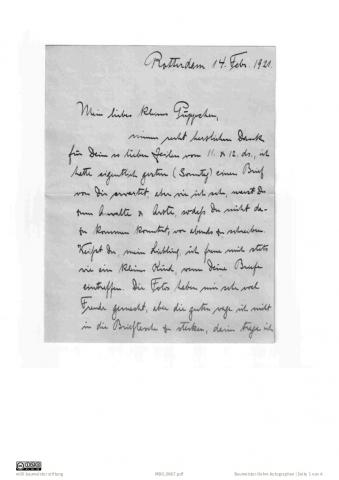 Rotterdam 14. Febr. 1921.
Mein liebes kleines Püppchen,
nimm recht herzlichen Dank
für Deine so lieben Zeilen vom 11. & 12. ds., ich
hatte eigentlich gestern (Sonntag) einen Brief
von Dir erwartet, aber wie ich seh, warst Du
zum Anwalte & Ärzte, sodaß Du nicht da-
zu kommen konntest, vor abends zu schreiben.
Weißt Du, mein Liebling, ich freue mich stets
wie ein kleines Kind, wenn Deine Briefe
eintreffen. Die Fotos haben mir sehr viel
Freude gemacht, aber die guten wage ich nicht
in die Brieftasche zu stecken, darin trage ich
willi baumeister stiftung
Seite 1 von 4